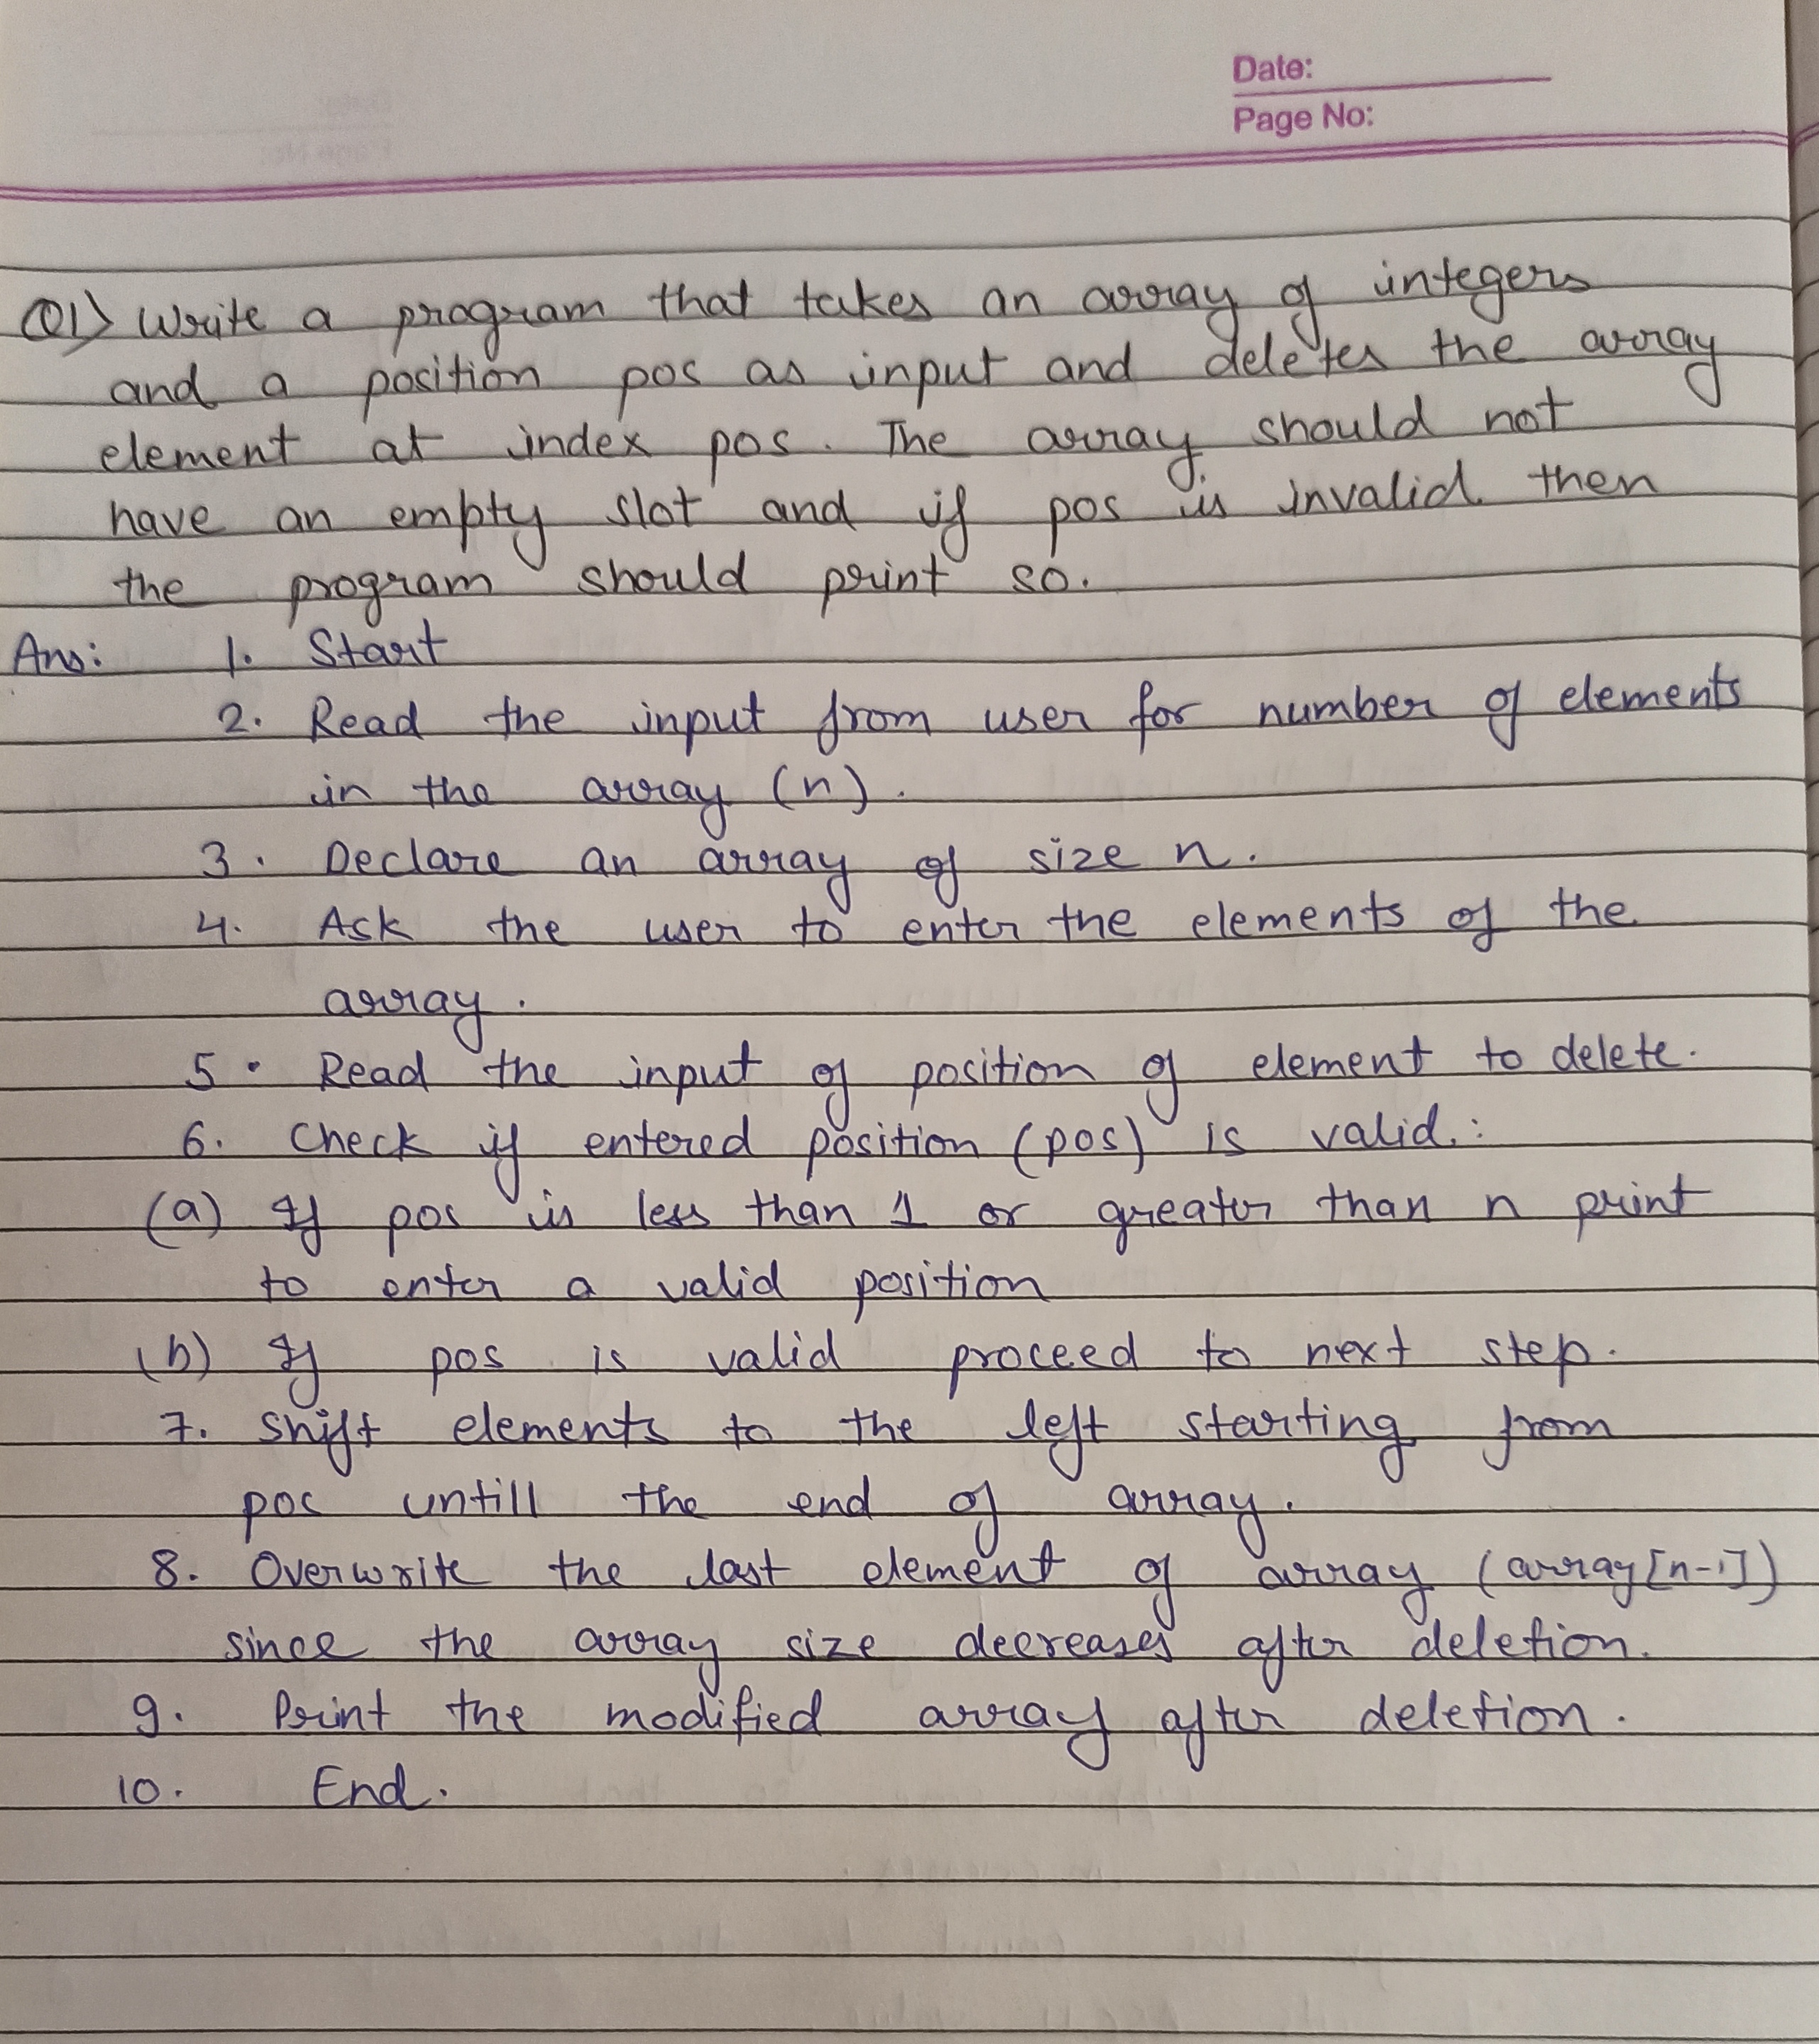 Date:
Page No:
Q1) Write a program that takes an array of integers
and a position pos as input and deletes the array
element at index pos. The array should not
have an empty slot and if pos is invalid then
the program should print so.
Ans: 1. Start
2. Read the input from user for number of elements
in the array (n).
3. Declare an array of size n.
4. Ask the user to enter the elements of the
array.
5. Read the input of position of element to delete.
6. Check if entered position (pos) is valid:
(a) If pos is less than 1 or greater than n print
to enter a valid position
(b) If pos is valid proceed to next step.
7. Shift elements to the left starting from
pos untill the end of array.
8. Overwrite the last element of array (array[n-1])
since the array size decreases after deletion.
9. Print the modified array after deletion.
10. End.